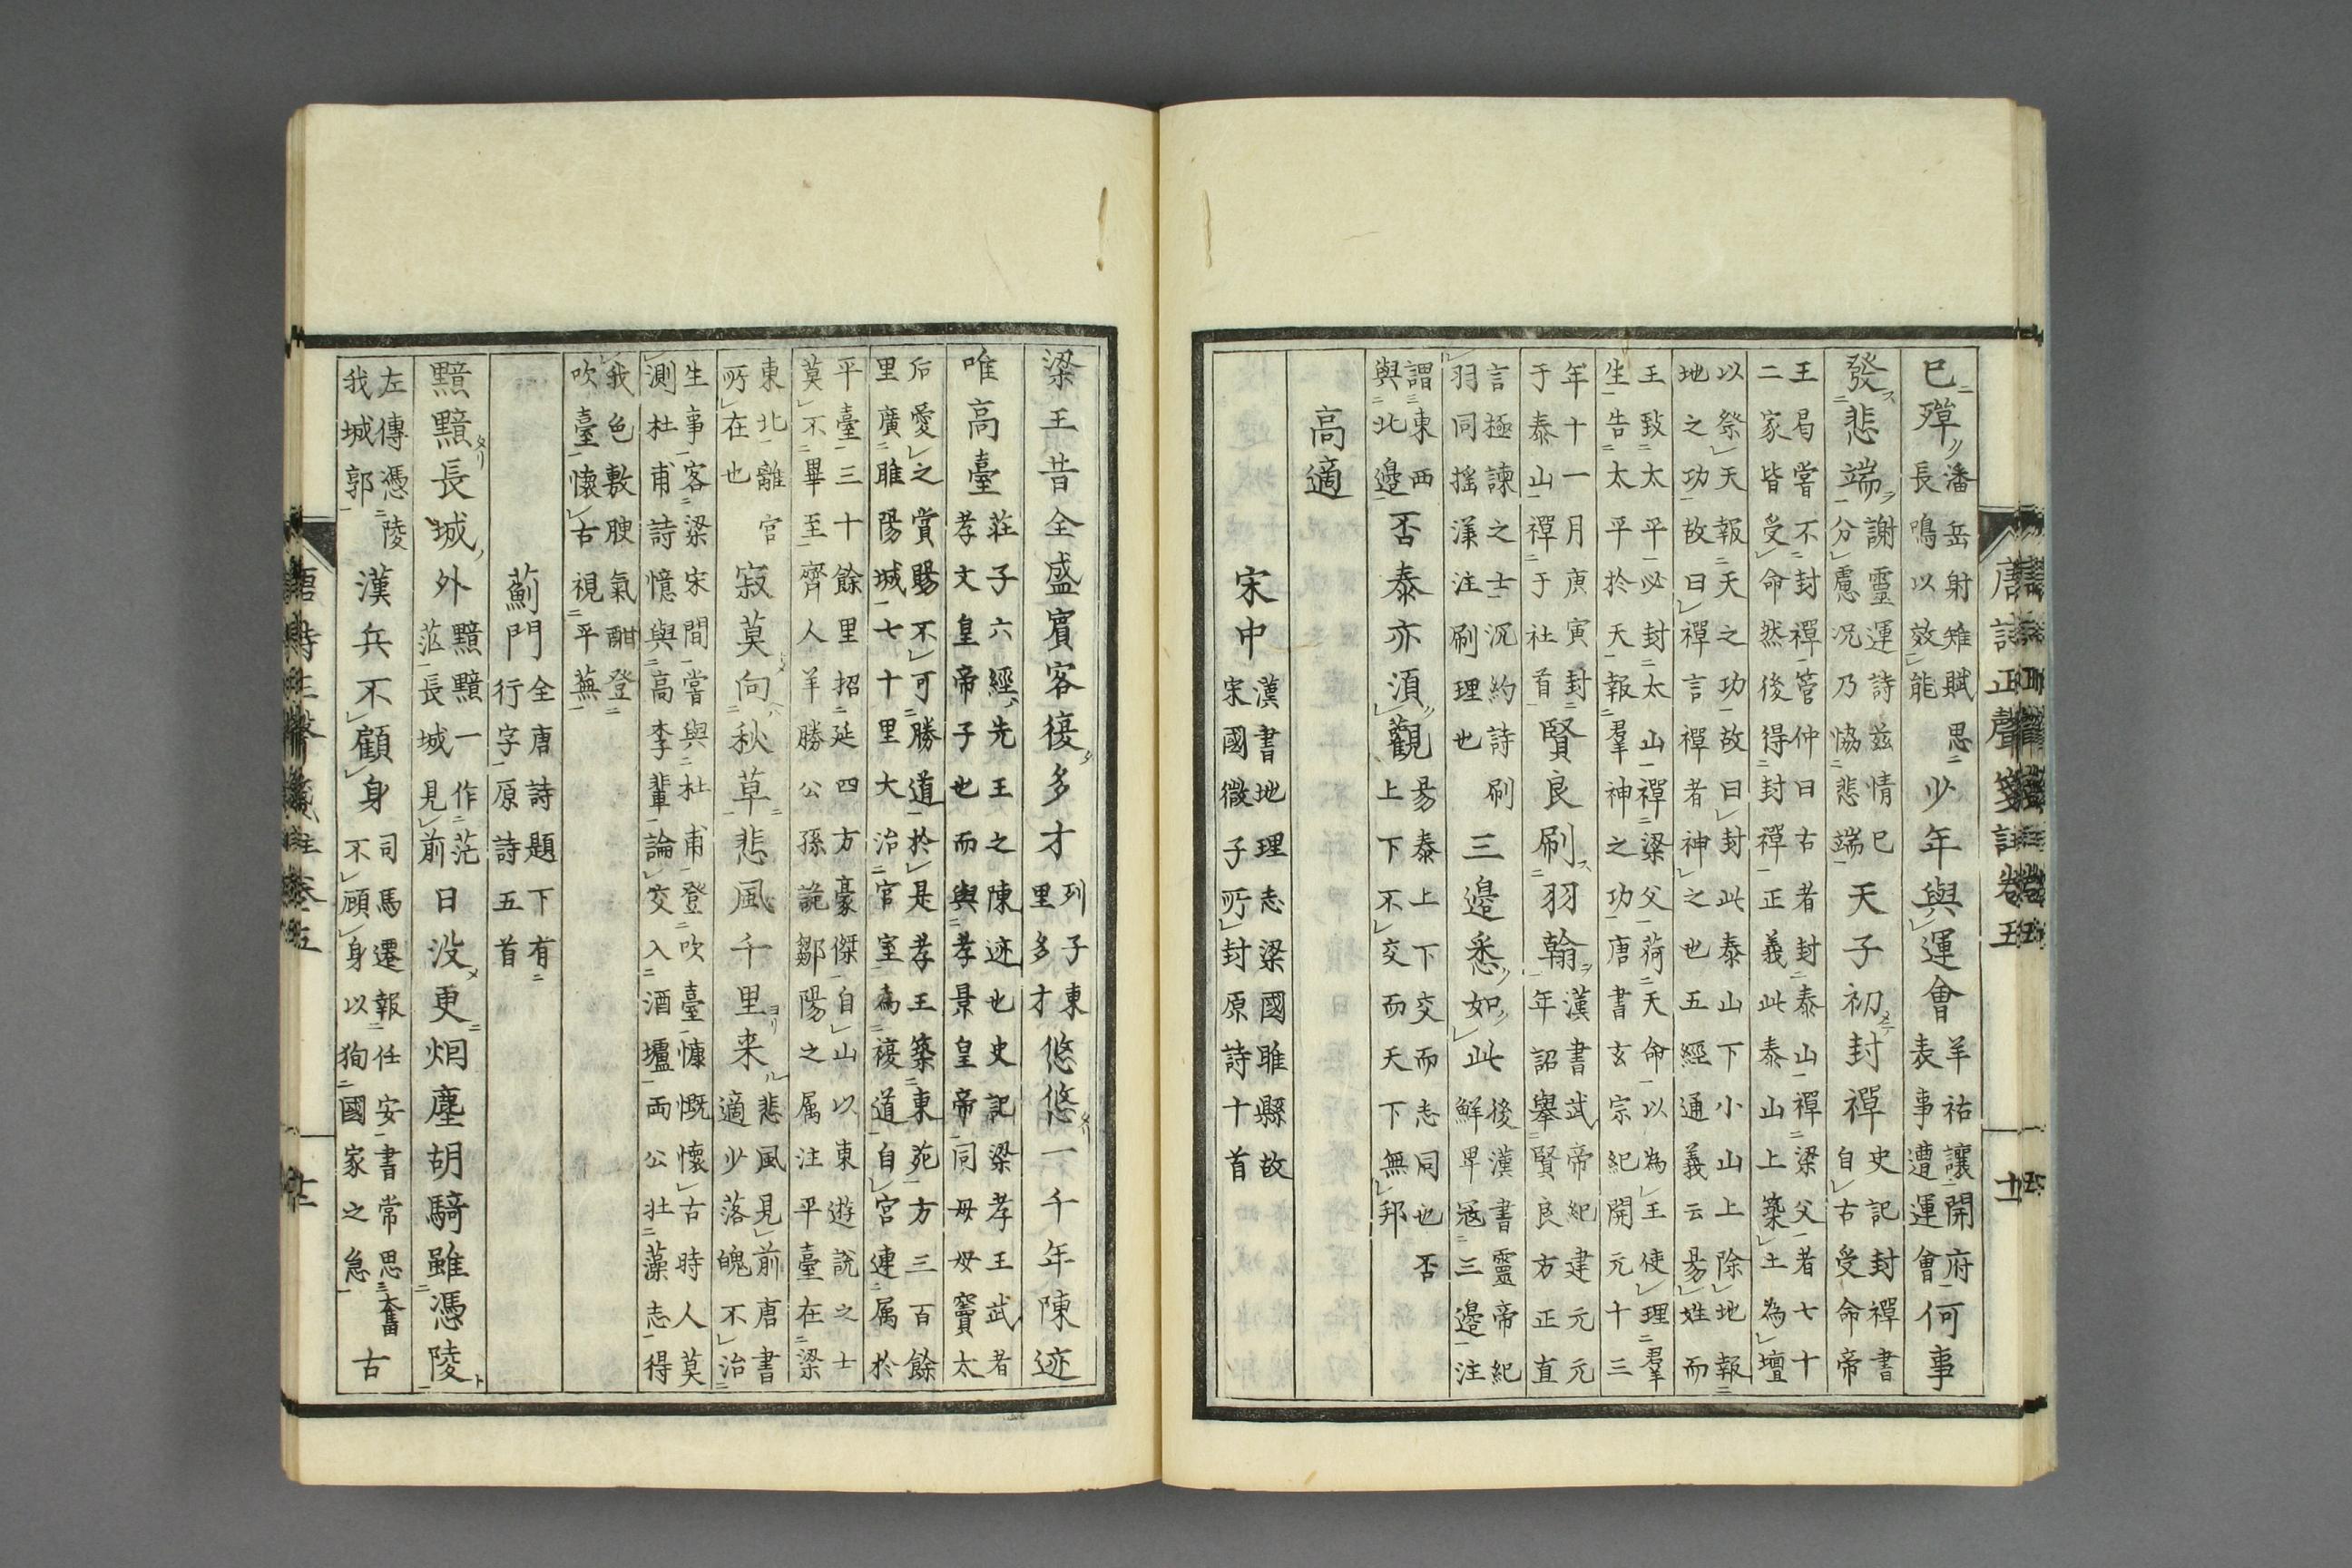 唐詩正聲箋註卷五
十
已殫潘岳射雉賦思長鳴以效能少年與運會羊祜讓開府表事遭運會何事
發悲端謝靈運詩茲情已分慮況乃協悲端天子初封禪史記封禪書自古受命帝
王曷嘗不封禪管仲曰古者封泰山禪梁父者七十二家皆受命然後得封禪正義此泰山上築土為壇
以祭天報天之功故曰封此泰山下小山上除地報地之功故曰禪言禪者神之也五經通義云易姓而
王致太平必封太山禪梁父荷天命以為王使理羣生告太平於天報羣神之功唐書玄宗紀開元十三
年十一月庚寅封于泰山禪于社首賢良刷羽翰漢書武帝紀建元元年詔舉賢良方正直
言極諫之士沉約詩刷羽同搖漾注刷理也三邊悉如此後漢書靈帝紀鮮卑寇三邊注
謂東西與北邊否泰亦須觀易泰上下交而志同也否上下不交而天下無邦
高適
宋中漢書地理志梁國睢縣故宋國微子所封原詩十首
梁王昔全盛賓客復多才列子東里多才悠悠一千年陳迹
唯高臺莊子六經先王之陳迹也史記梁孝王武者孝文皇帝子也而與孝景皇帝同母母竇太
后愛之賞賜不可勝道於是孝王築東苑方三百餘里廣睢陽城七十里大治宮室為複道自宮連屬於
平臺三十餘里招延四方豪傑自山以東遊說之士莫不畢至齊人羊勝公孫詭鄒陽之属注平臺在梁
東北離宮所在也寂莫向秋草悲風千里来悲風見前唐書適少落魄不治
生事客梁宋間嘗與杜甫登吹臺慷慨懷古時人莫測杜甫詩憶與高李輩論交入酒壚両公壯藻志得
我色敷腴氣酣登吹臺懷古視平蕪
薊門全唐詩題下有行字原詩五首
黯黯長城外黯黯一作茫茫長城見前日没更烟塵胡騎雖憑陵
左傳憑陵我城郭漢兵不顧身司馬遷報任安書常思奮不顧身以狥國家之急古
唐詩正聲箋註卷五